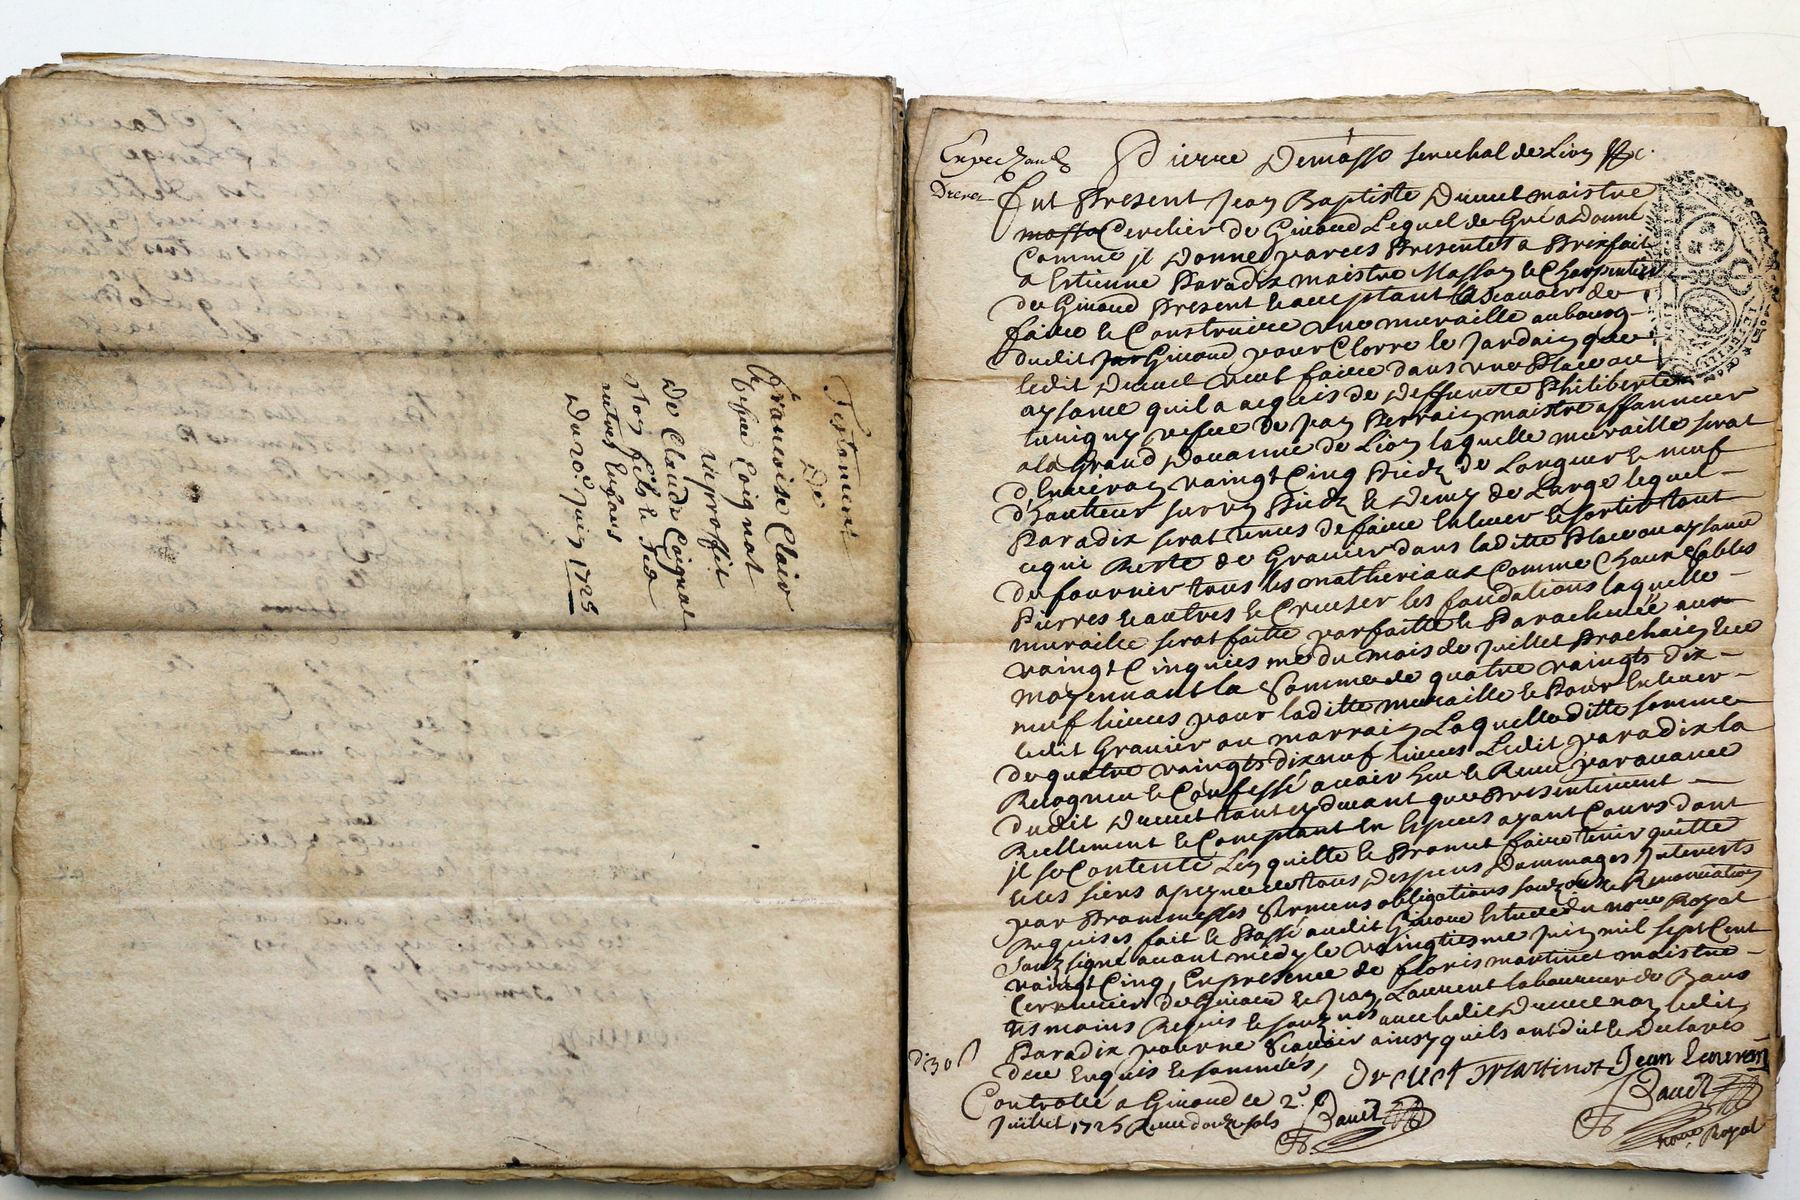 Testament
De
Francoise Clair
vefue Coignat
au proffit
De Claude Coignat
son fils &
autres Enfans
Du 20e. Juin 1725
Pierre Demasso senechal de Lion &c.
Fut Present Jean Baptiste Ducret maistre
masso Cerclier de Giuord Lequel de Gré a donné
Comme jl Donne par ces Presentes a Prixfait
a Estienne Paradix maistre Masson & Charpentier
de Giuord Present & acceptant a scauoir de
faire & Construire vne muraille au bourg
dudit Giuord pour Clorre le Jardain que
ledit Ducret veut faire dans vne Place ou
aysance quil a acquis de deffuncte Philiberte
vefue de Jean Perrain maistre affanneur
a la Grand Douanne de Lion laquelle muraille serat
d'Enuiron vaingt Cinq Piedz de Longueur & neuf
d'hauteur sur vn Piedz & Demy de Large lequel
Paradix serat tenus de faire Enleuer & sortir tout
ce qui Reste de Grauier dans laditte Place ou aysance
de fournir tous les matheriaux Comme Chaux sables
Pierres & autres & Creuser les fondations laquelle
muraille serat faitte parfaitte & Paracheuéé au
vaingt Cinquiesme du mois de Juillet Prochain & ce
moyennant la Somme de quatre vaingts dix
neuf liures pour laditte muraille & Pour Enleuer
ledit Grauier ou marrain Laquelle ditte somme
de quatre vaingts dix neuf liures Ledit paradix la
Recogneu & Confessé auoir heu & Receu par auance
dudit Ducret tant cy deuant que Presentement
Reellement & Comptant En Especes ayant Cours dont
jl se Contente L'en quitte & Promet faire tenir quitte
& les siens a peyne de tous Despens Dommages Jnterests
par Prommesses Sermens obligations soubz & Renonciations
Requises fait & Passé audit Giuord Estude du nore. Royal
Soubzsigné auant midy le vaingtiesme Juin mil sept Cent
vaingt Cinq, En presence de floris martinet maistre
Serrurier de Giuord & Jean Laurent laboureur de Bans
tesmoins Requis & soubznés auec ledit Ducret non ledit
Paradix pour ne Scauoir ainsy quils ont dit & Declaré
de ce Enquis & sommés,
Ducret Martinet Jean Lauran
Controllé a Giuord ce 2e.
Juillet 1725 Receu douze sols
nore. Royal